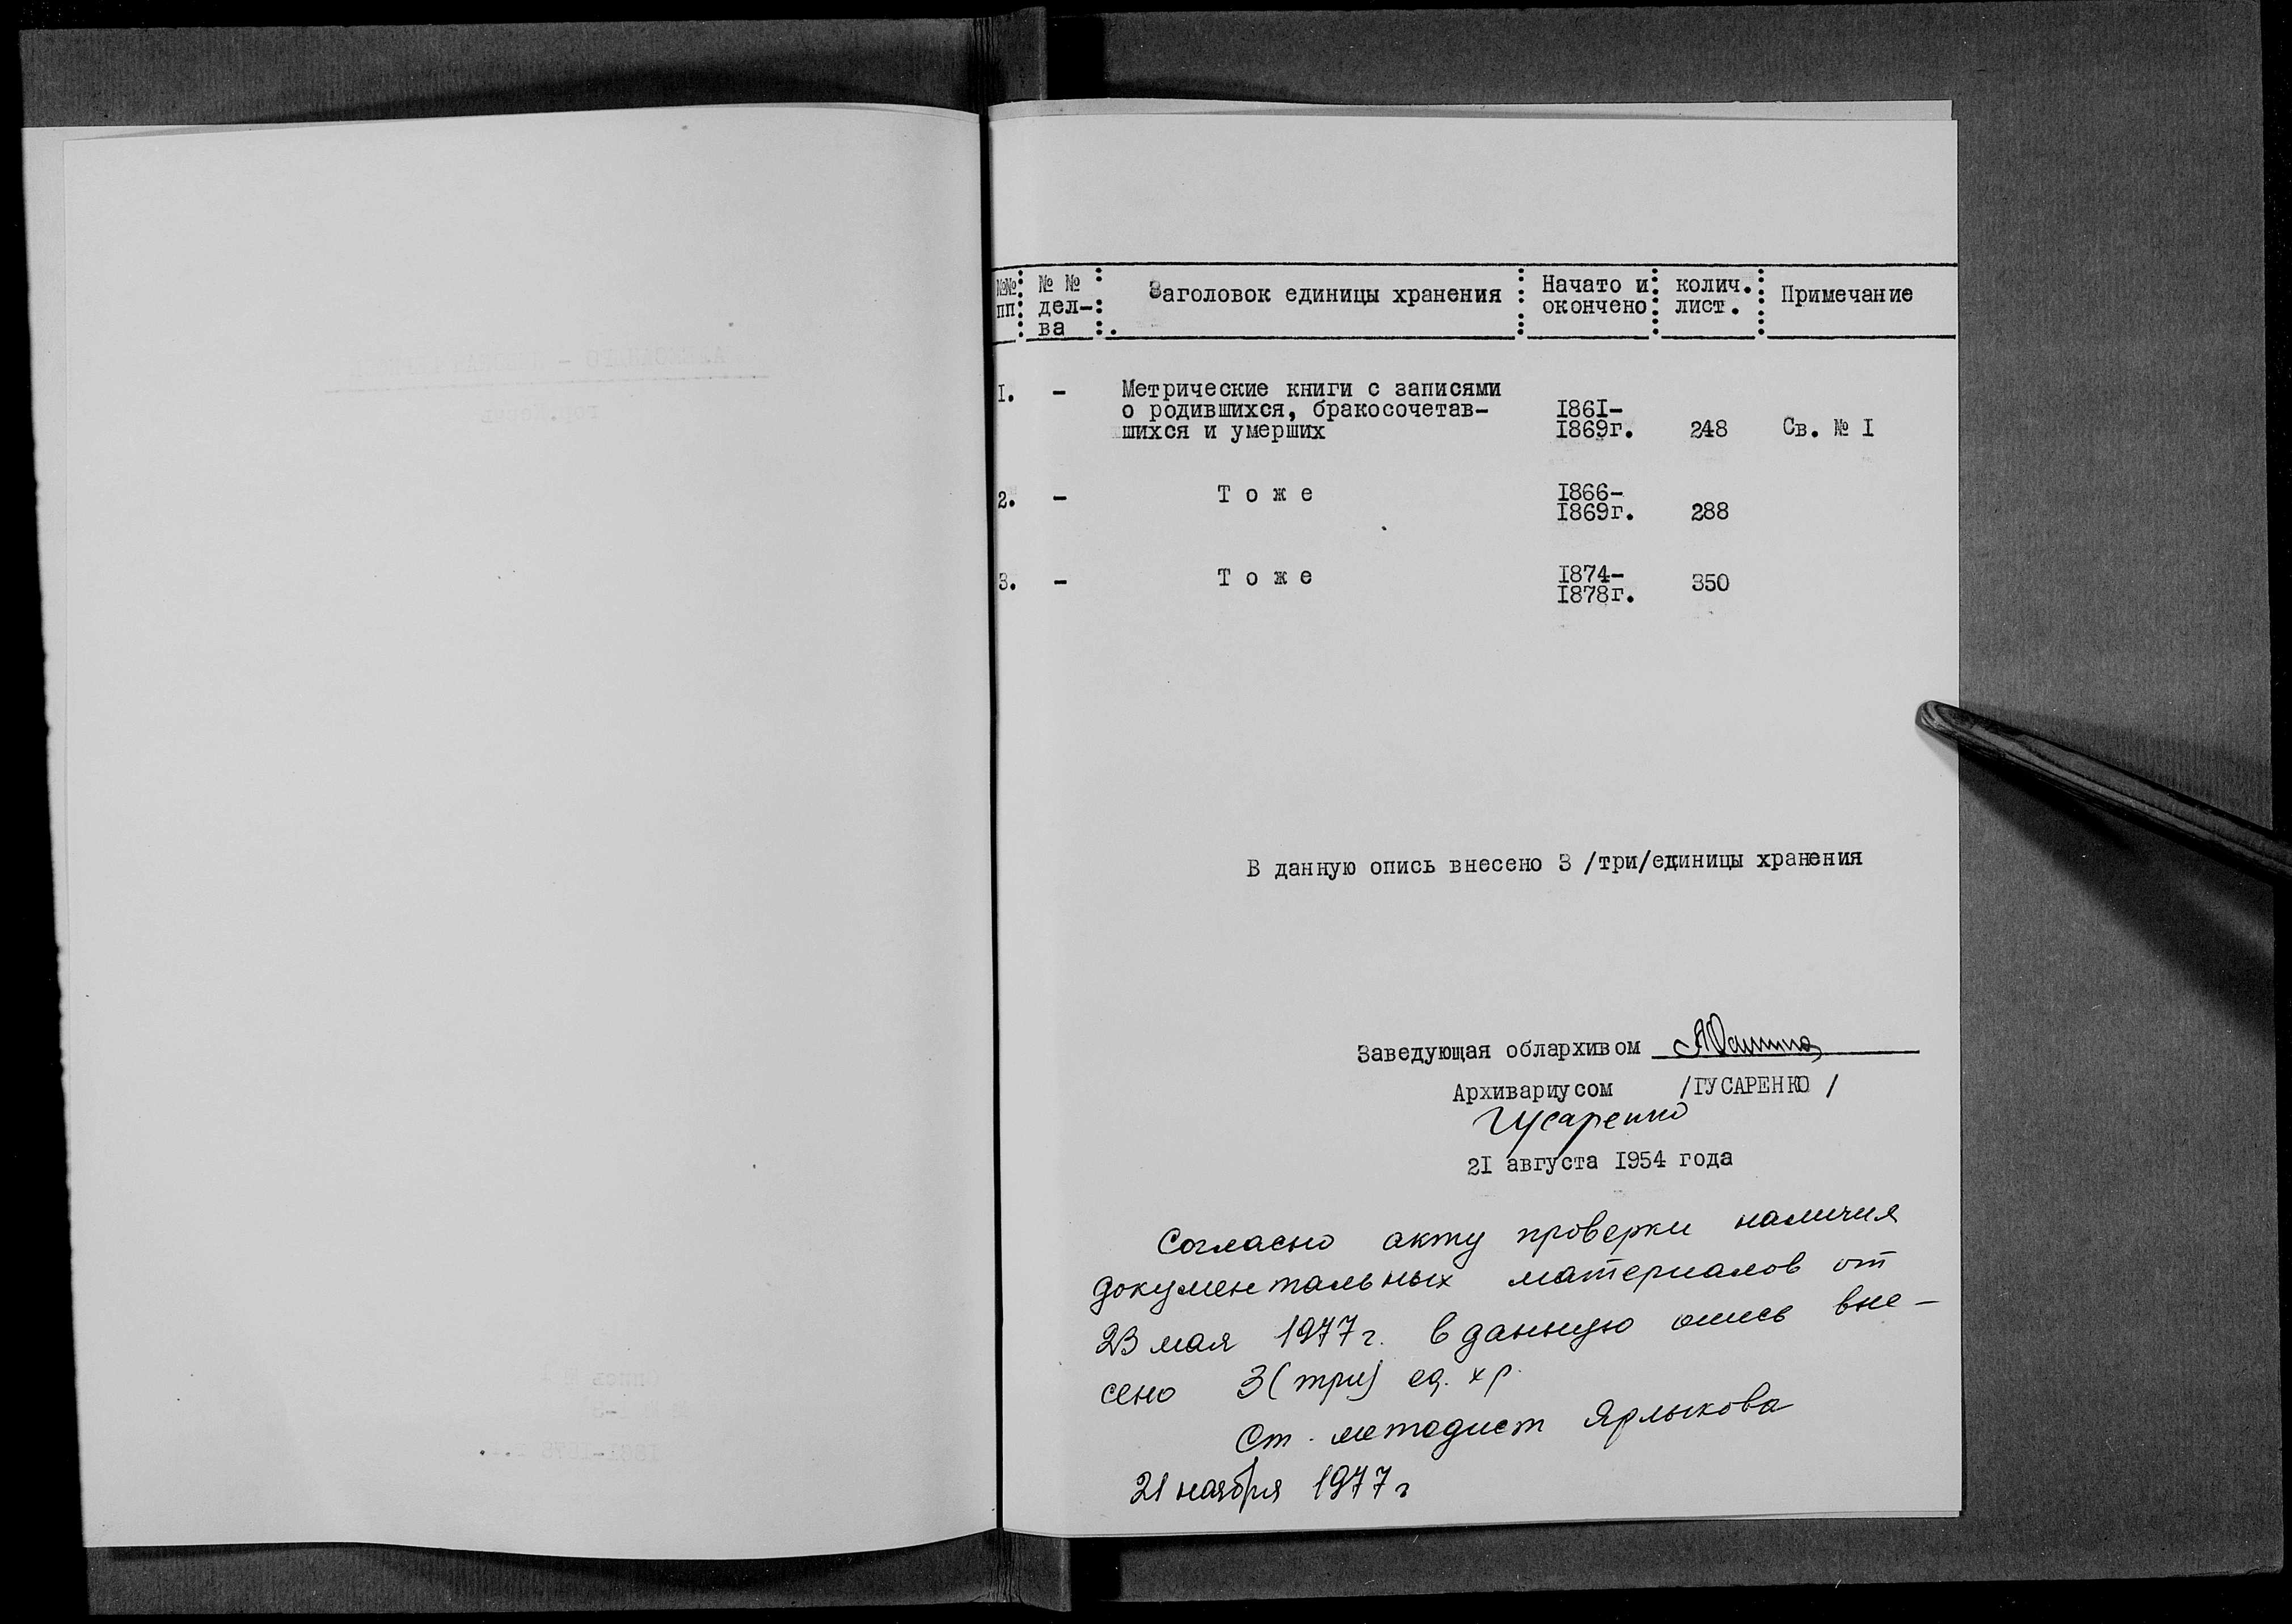 №№ пп : № № дел-ва : Заголовок единицы хранения : Начато и окончено : колич. лист. : Примечание
1. - Метрические книги с записями
о родившихся, бракосочетав-
шихся и умерших
1861-
1869г. 248 Св. № 1
2. - Т о ж е 1866-
1869г. 288
3. - Т о ж е 1874-
1878г. 350
В данную опись внесено 3 /три/единицы хранения
Заведующая облархивом
Архивариусом /ГУСАРЕНКО /
Гусаренко
21 августа 1954 года
Согласно акту проверки наличия
документальных материалов от
23 мая 1977 г. в данную опись вне-
сено 3 (три) ед. хр.
Ст. методист Ярлыкова
21 ноября 1977 г